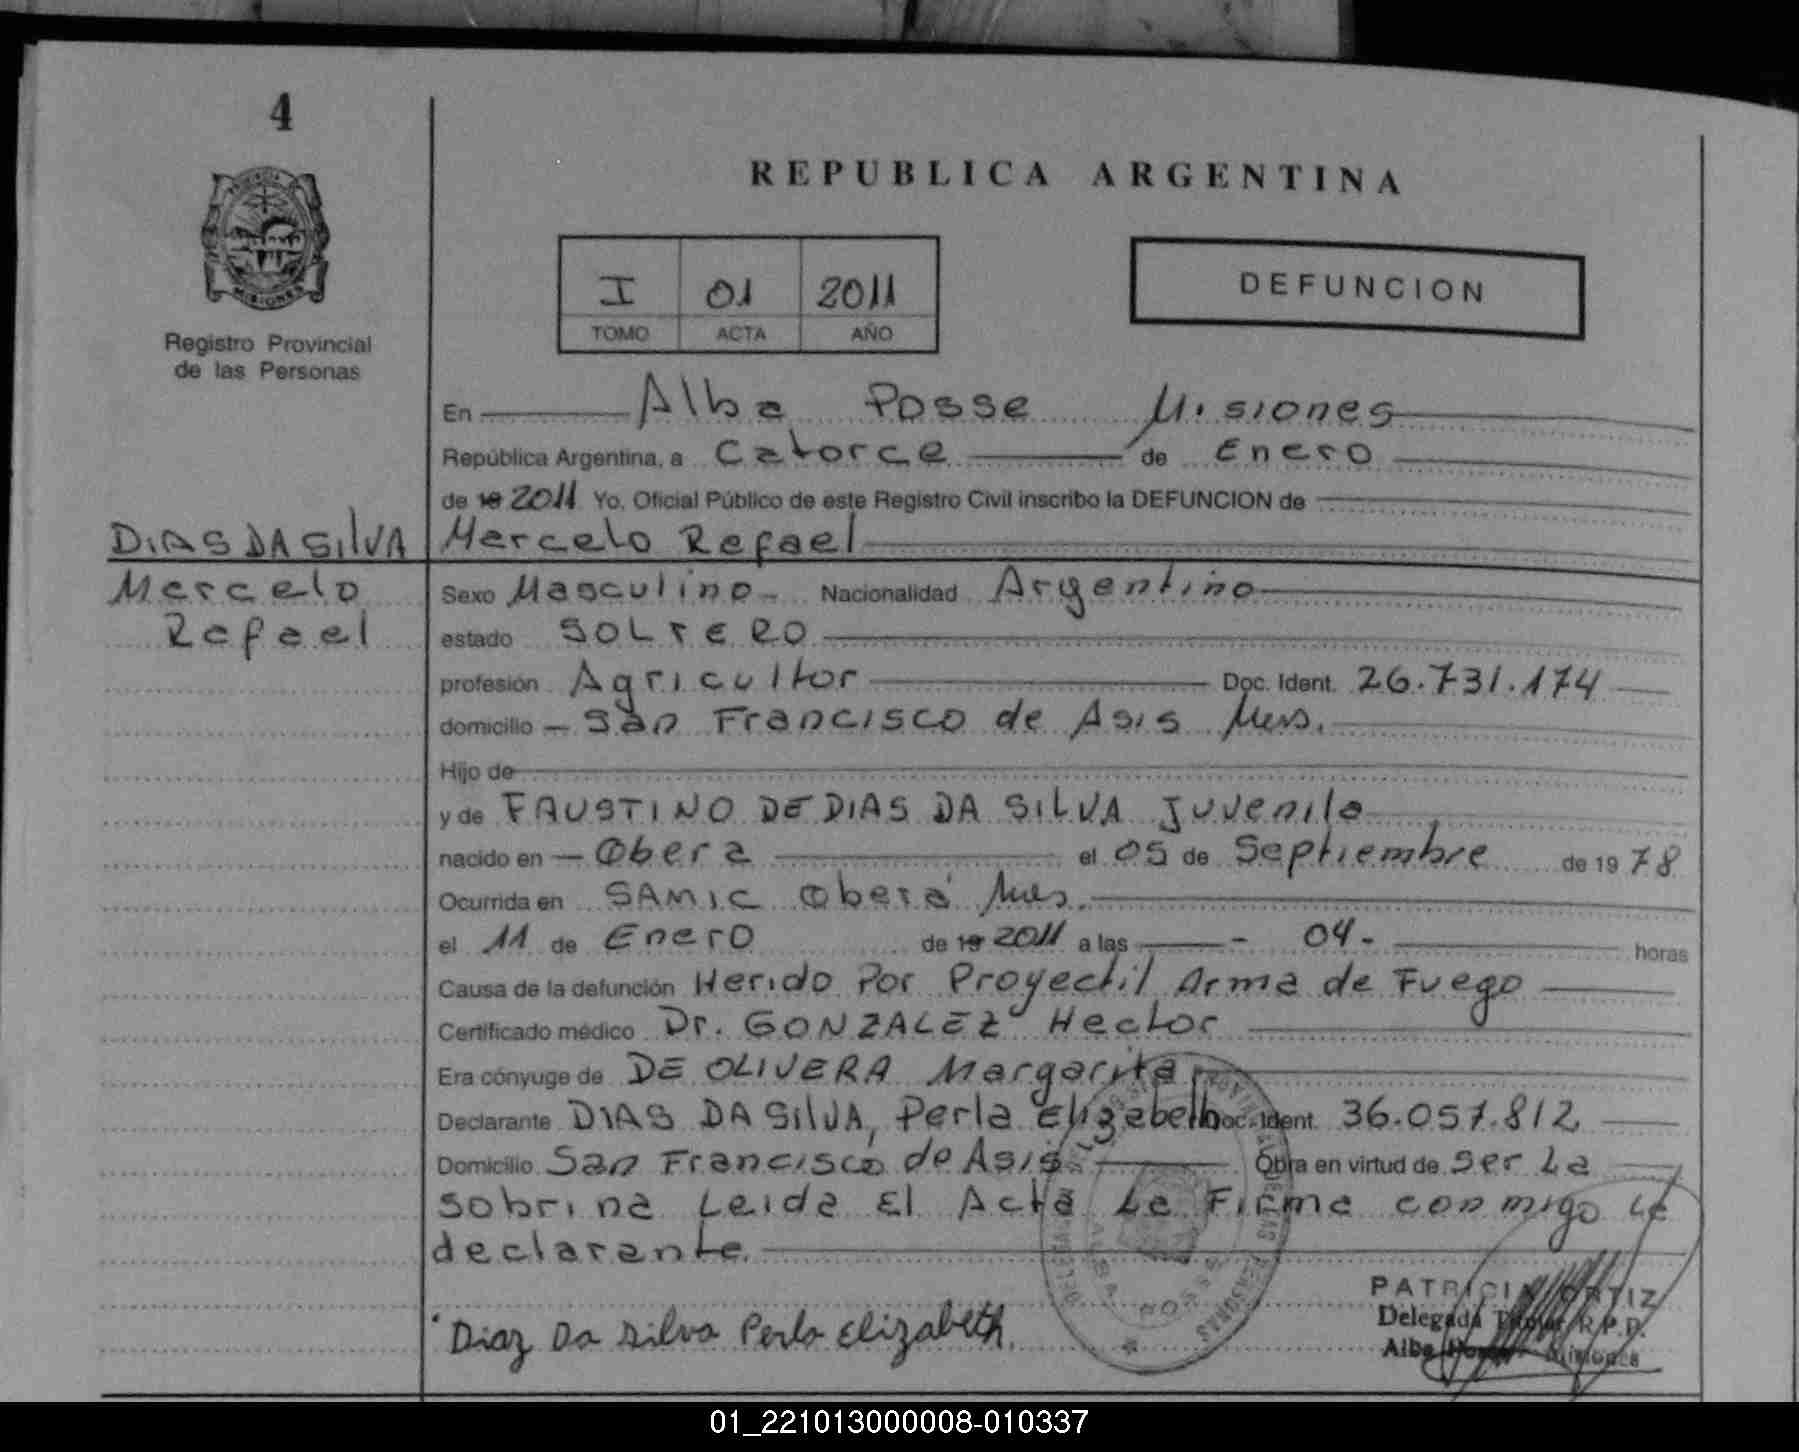 4
REPUBLICA ARGENTINA
I 01 2011
TOMO ACTA AÑO
DEFUNCION
MISIONES
Registro Provincial
de las Personas
En Alba Posse Misiones
República Argentina, a Catorce de Enero
de 19 2011 Yo, Oficial Público de este Registro Civil inscribo la DEFUNCION de
DIAS DA SILVA Marcelo Rafael
Marcelo
Rafael
Sexo Masculino - Nacionalidad Argentino
estado SOLTERO
profesión Agricultor Doc. Ident. 26.731.174
domicilio - San Francisco de Asis Mns.
Hijo de
y de FAUSTINO DE DIAS DA SILVA Juvenila
nacido en - Obera el 05 de Septiembre de 1978
Ocurrida en SAMIC Oberá Mns.
el 11 de Enero de 19 2011 a las - 04 - horas
Causa de la defunción Herido Por Proyectil Arma de Fuego
Certificado médico Dr. GONZALEZ Hector
Era cónyuge de DE OLIVERA Margarita
Declarante DIAS DA SILVA, Perla Elizabeth Doc. Ident. 36.057.812
Domicilio San Francisco de Asis Obra en virtud de ser La
sobrina Leida El Acta La Firma conmigo La
declarante.
Diaz Da Silva Perla Elizabeth.
PATRICIA ORTIZ
Delegada Titular R.P.P.
Alba Posse Misiones
01_221013000008-010337